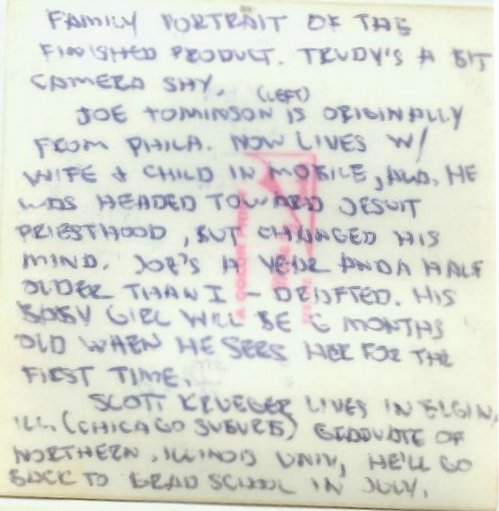 FAMILY PORTRAIT OF THE
FINISHED PRODUCT. TRUDY'S A BIT
CAMERA SHY.
(LEFT)
JOE TOMINSON IS ORIGINALLY
FROM PHILA. NOW LIVES W/
WIFE & CHILD IN MOBILE, ALA. HE
WAS HEADED TOWARD JESUIT
PRIESTHOOD, BUT CHANGED HIS
MIND. JOE'S A YEAR AND A HALF
OLDER THAN I - DRAFTED. HIS
BABY GIRL WILL BE 6 MONTHS
OLD WHEN HE SEES HER FOR THE
FIRST TIME.
SCOTT KRUEGER LIVES IN ELGIN,
ILL. (CHICAGO SUBURB) GRADUATE OF
NORTHERN ILLINOIS UNIV, HE'LL GO
BACK TO GRAD SCHOOL IN JULY.